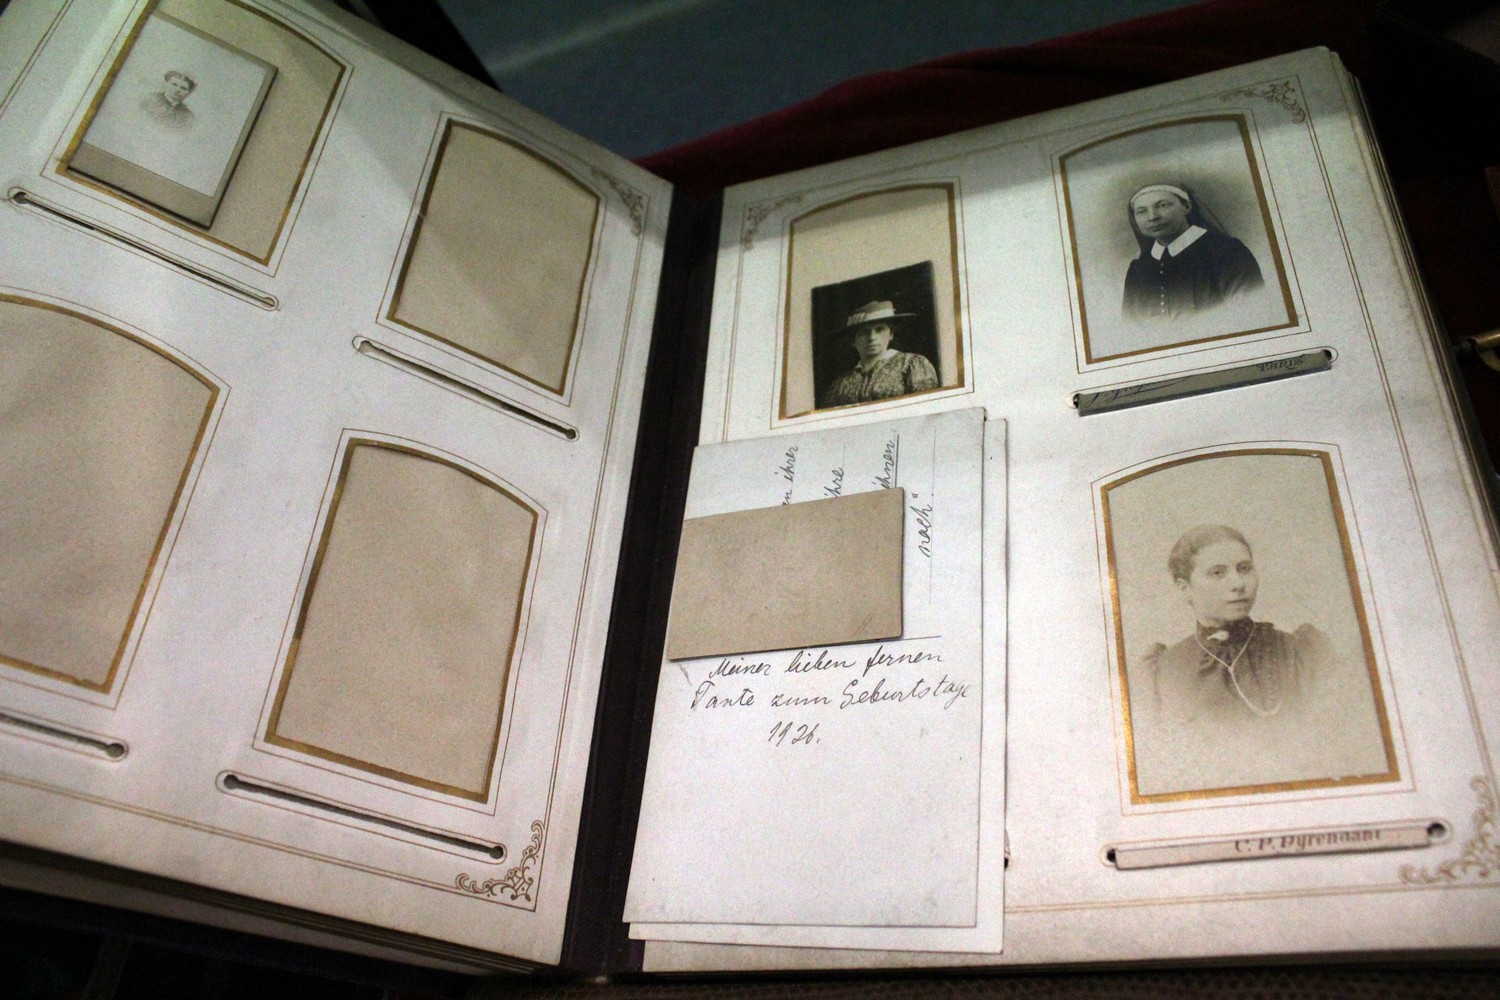 n ihrer
ihre
ihnen
nach"
Meiner lieben fernen
Tante zum Geburtstage
1926.
C. P. Dyrendahl